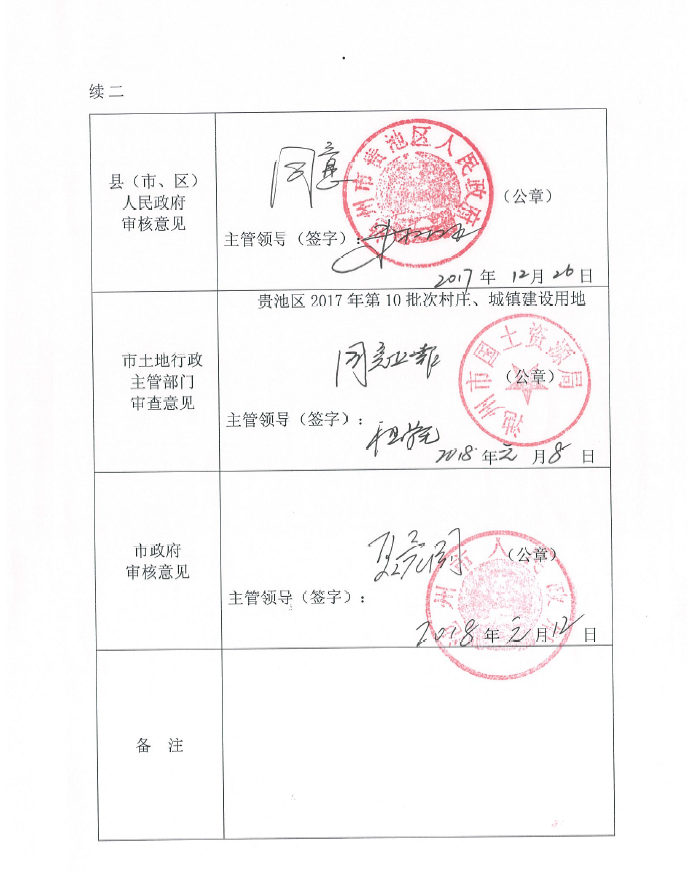 续二
县（市、区）
人民政府
审核意见
同意
池州市贵池区人民政府
（公章）
主管领导（签字）：
2017 年 12 月 26 日
贵池区 2017 年第 10 批次村庄、城镇建设用地
市土地行政
主管部门
审查意见
同意上报
池州市国土资源局
（公章）
主管领导（签字）：
2018 年 元 月 8 日
市政府
审核意见
池州市人民政府
（公章）
主管领导（签字）：
2018 年 元 月 12 日
备 注